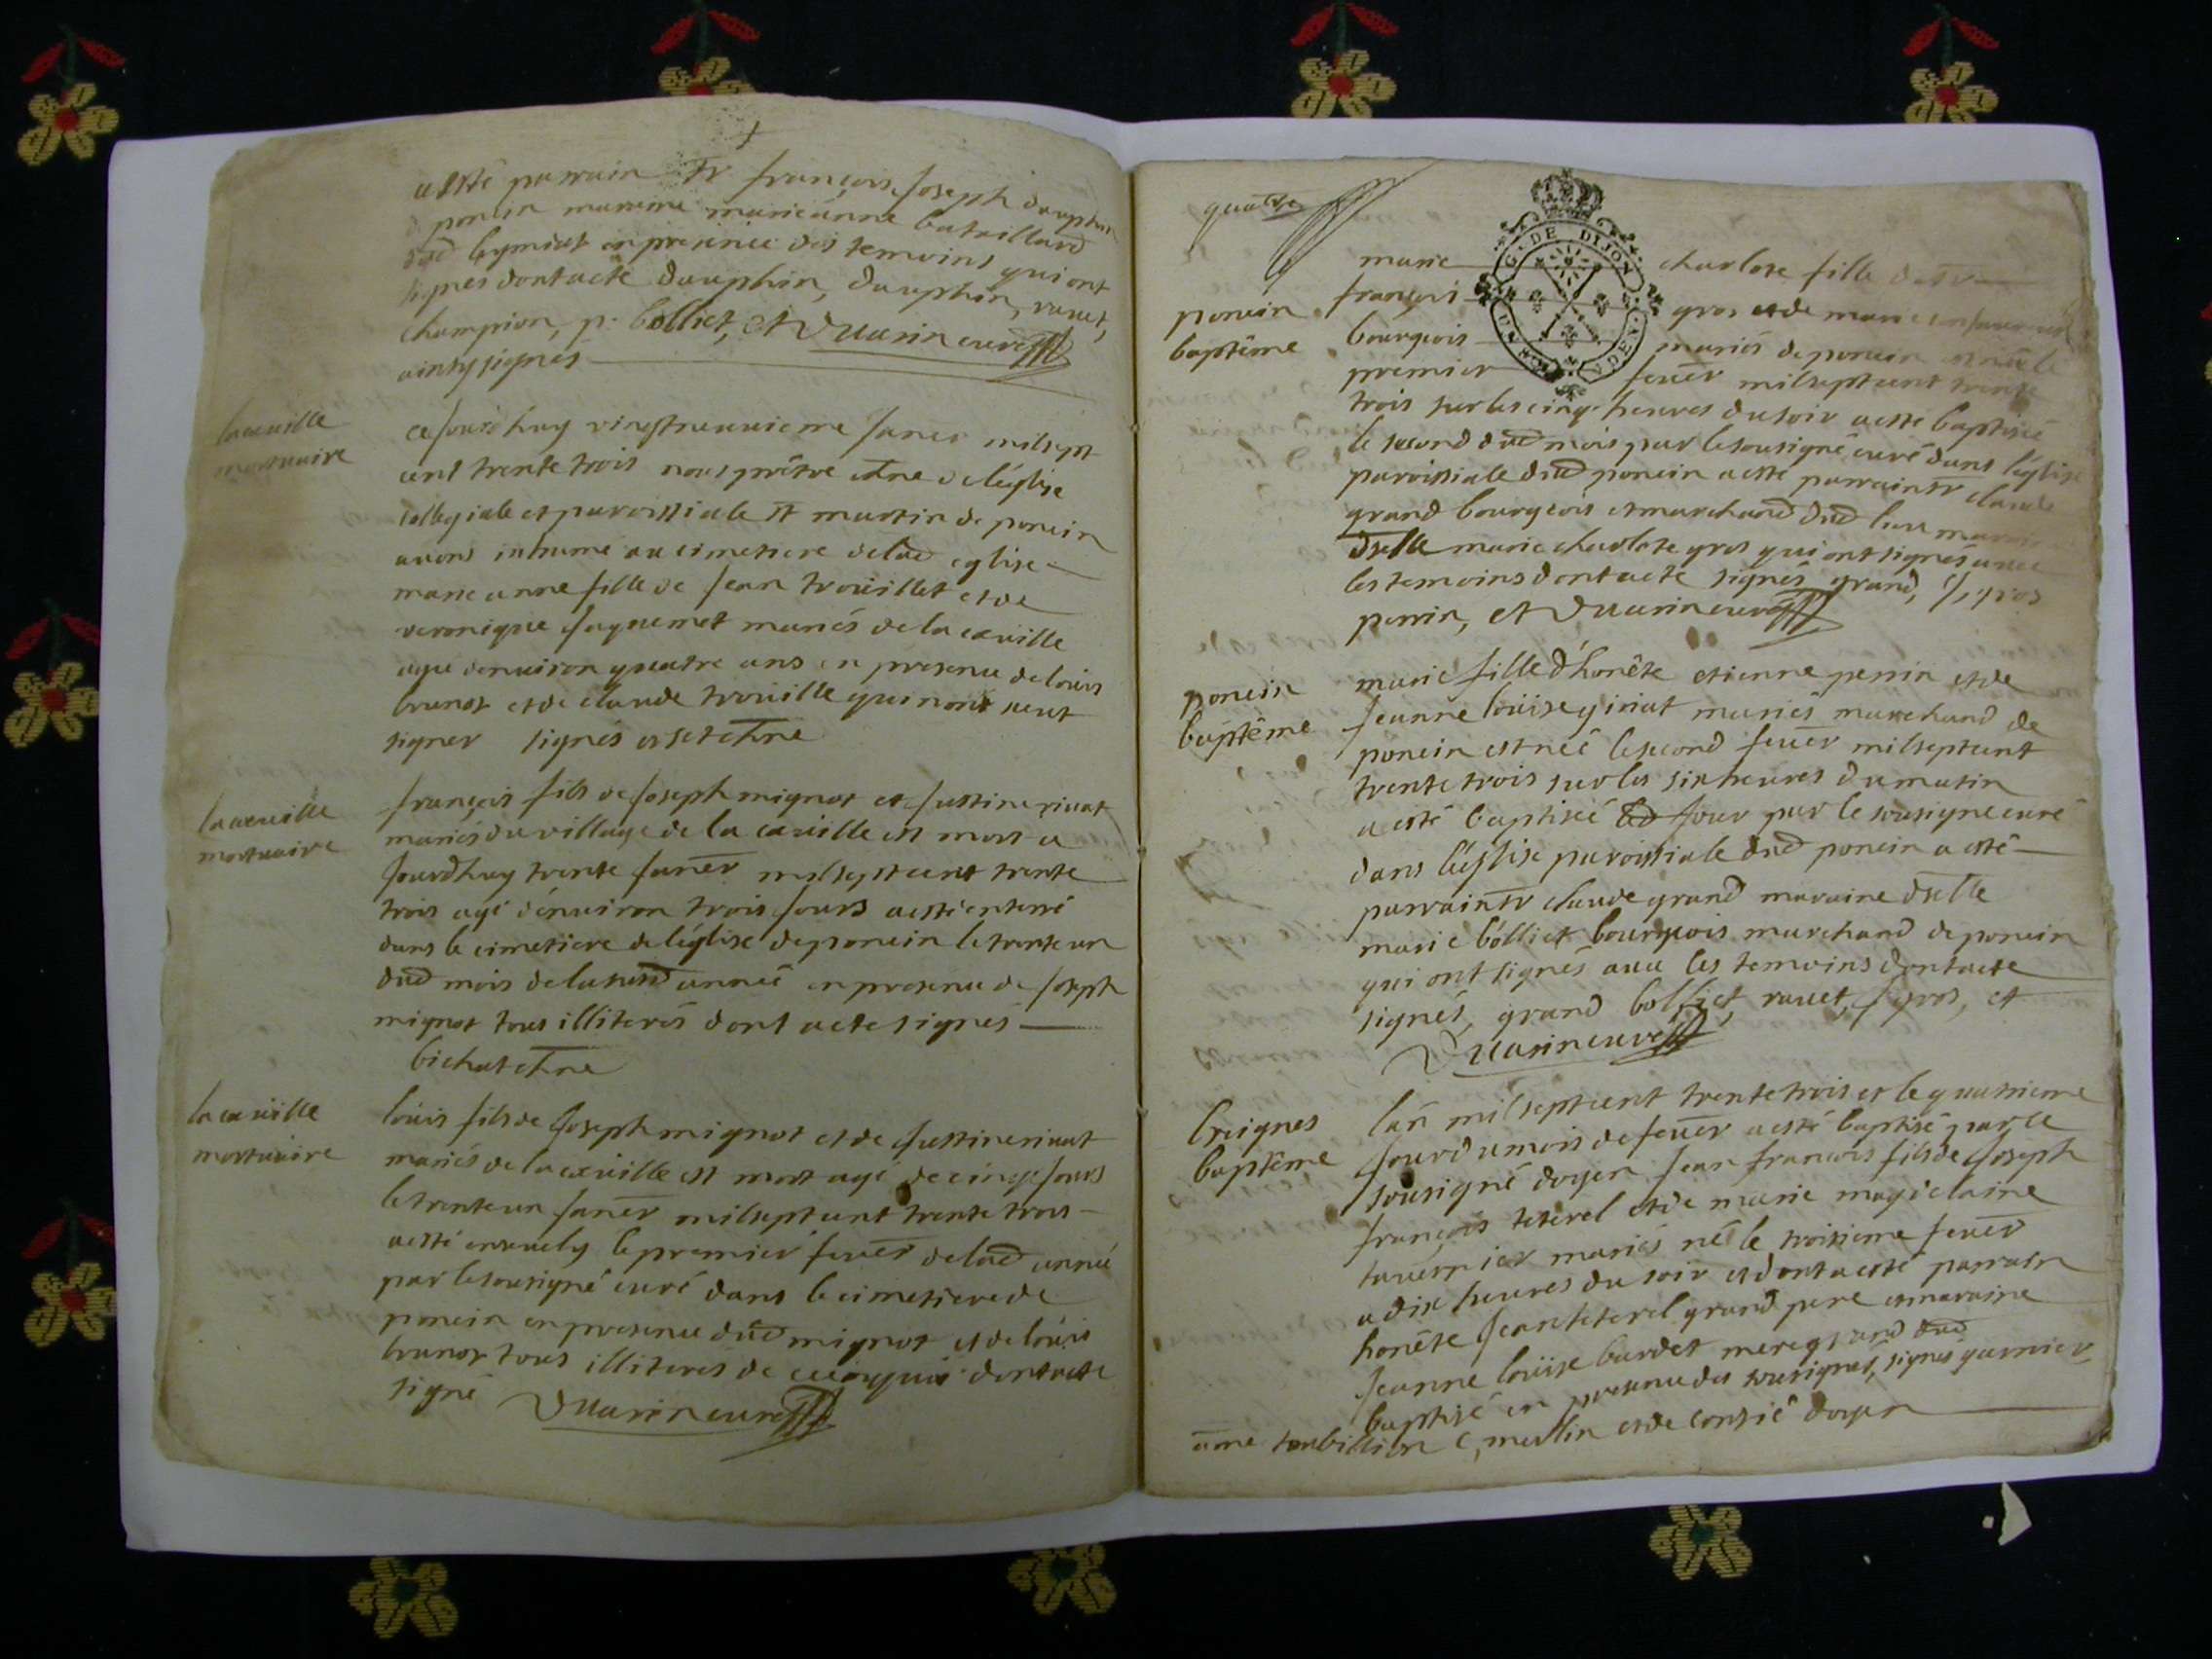 a esté parrain Sr françois Joseph dauphin
poncin maraine marieanne bataillard
dud leymiat en presence des temoins qui ont
signes dont acte dauphin, dauphin, ravet,
champion, p. bolliet, et Duarin curé
ainsy signés
la cueille
mortuaire
ce Jourdhuy vingtneuvieme Janer milsept
cent trente trois nous prêtre chne de léglise
collegiale et paroissiale st martin de poncin
avons inhumé au cimetiere delad eglise
marie anne fille de Jean trouillet et de
veronique Jaquemet mariés de la cueille
agée denviron quatre ans en presence de loüis
brunot et de claude trouille qui nont sceut
signer signés chne
la cueille
mortuaire
françois fils de Joseph mignot et Justine rivat
mariés du village de la cueille est mort a
Jourdhuy trente Janer milseptcent trente
trois agé denviron trois Jours a esté enterré
dans le cimetiere de léglise de poncin le trente un
dud mois de la susd année en presence de Joseph
mignot tous illiterés dont acte signés
bichat chne
la cueille
mortuaire
loüis fils de Joseph mignot et de Justine rivat
mariés de la cueille est mort agé de cinq Jours
le trente un Janer milseptcent trente trois
a esté ensevely le premier fever delad année
par le sousigné curé dans le cimetiere de
poncin en presence dud mignot et de loüis
brunot tous illiterés de ce enquis dont acte
signé Duarin curé
quatre
G. DE DIJON
poncin
baptême
marie charlote fille de Sr
françois gros et de marie
bourgeois mariés de poncin est née le
premier fever milseptcent trente
trois sur les cinq heures du soir a esté baptisée
le second dud mois par le sousigné curé dans léglise
paroissiale dud poncin a esté parrain Sr claude
grand bourgeois et marchand dud lieu
dselle marie charlote gros qui ont signés avec
les temoins dont acte signés grand, gros
perrin, et Duarin curé
poncin
baptême
marie fille dhonête etienne perrin et de
Jeanne loüise giriat mariés marchand de
poncin est née le second fever milseptcent
trente trois sur les six heures du matin
a esté baptisée led Jour par le sousigné curé
dans léglise paroissiale dud poncin a esté
parrain Sr claude grand maraine dselle
marie bolliet bourgeois marchand de poncin
qui ont signés avec les temoins dont acte
signés, grand bolliet, ravet, gros, et
Duarin curé
breignes
baptême
lan milseptcent trente trois et le quatrieme
Jour du mois de fever a esté baptisé par le
sousigné doyen Jean françois fils de Joseph
françois teterel et de marie
tavernier mariés né le troisieme fever
a dix heures du soir et dont a esté parrain
honête Jean teterel grand pere et maraine
Jeanne loüise burdet mere grand dud
baptisé en presence des sousignés, signés garnier
c, merlin et de conzié doyen